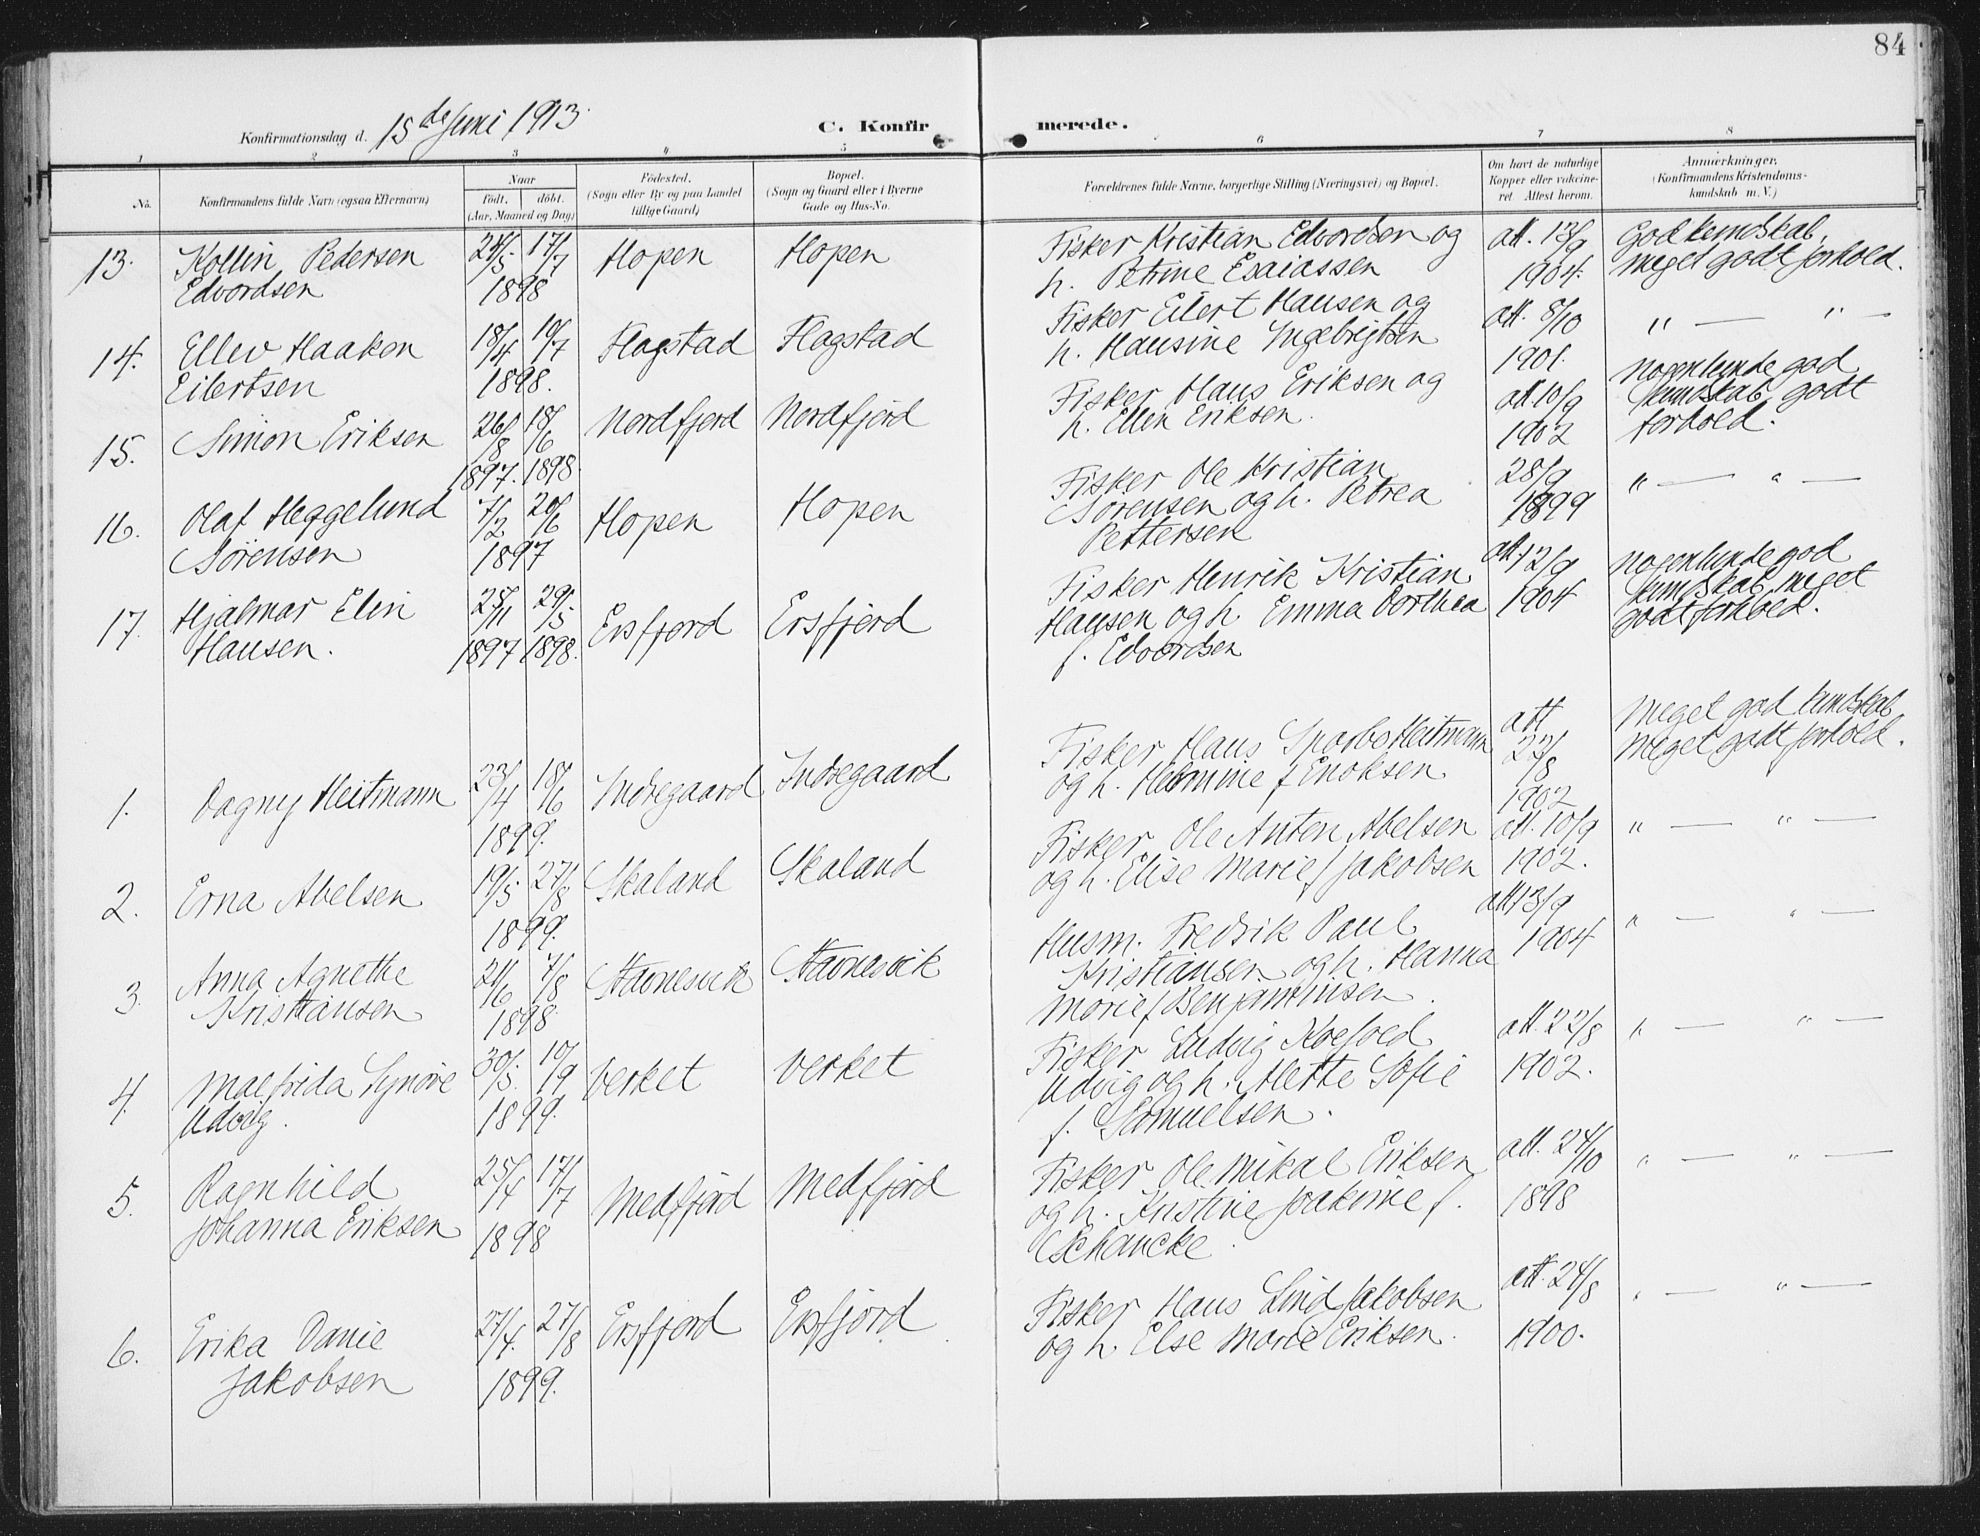 84
Konfirmationsdag d. 15de Juni 1913.
C. Konfir merede.
1 2 3 4 5 6 7 8
No.
Konfirmandens fulde Navn (ogsaa Efternavn)
Naar
Födt. döbt.
(Aar, Maaned og Dag)
Födested.
(Sogn eller By og paa Landet
tillige Gaard)
Bopæl.
(Sogn og Gaard eller i Byerne
Gade og Hus-No.
Forældrenes fulde Navne, borgerlige Stilling (Næringsvei) og Bopæl.
Om havt de naturlige
Kopper eller vakcine-
ret. Attest herom.
Anmærkninger.
(Konfirmandens Kristendoms-
kundskab m. V.)
13. Kollin Pedersen
Edvardsen
24/5 17/7
1898
Hopen
Hopen
Fisker Kristian Edvardsen og
h. Petrine Esaiassen
att. 13/9
1904.
God kundskab,
meget godt forhold.
14. Ellev Haakon
Eilertsen
18/4 10/7
1898.
Flagstad
Flagstad
Fisker Eilert Hansen og
h. Hansine Ingebrigtsen
att. 8/10
1901.
" — " —
15. Simon Eriksen
26/8 18/6
1897. 1898.
Nordfjord
Nordfjord
Fisker Hans Eriksen og
h. Ellen Eriksen.
att. 10/9
1902
nogenlunde god
kundskab, godt
forhold.
16. Olaf Heggelund
Sörensen
7/2 20/6
1897
Hopen
Hopen
Fisker Ole Kristian
Sörensen og h. Petrea
Pettersen
28/9
1899
" — " —
17. Hjalmar Elin
Hansen.
25/11 29/5
1897 1898.
Ersfjord
Ersfjord
Fisker Henrik Kristian
Hansen og h. Emma Dorthea
f. Edvardsen
att. 12/9
1904
nogenlunde god
kundskab, meget
godt forhold.
1. Dagny Heitmann
23/4 18/6
1899.
Indregaard
Indregaard
Fisker Hans Heitmann
og h. f Enoksen
att
22/8
1902
Meget god kundskab,
meget godt forhold.
2. Erna Abelsen
19/5. 27/8
1899.
Skaland
Skaland
Fisker Ole Anton Abelsen
og h. Elise Marie f Jakobsen
att. 10/9
1902.
" — " —
3. Anna Agnethe
Kristiansen
21/6 7/8
1898.
Stavnesvik
Stavnesvik
Husm. Fredrik Paul
Kristiansen og h. Hanna
Marie f Benjaminsen.
att 13/9
1904
" — " —
4. Malfrida Synöve
Udvig.
30/5. 10/9
1899.
Verket
Verket
Fisker Ludvig Koefoed
Udvig og h. Mette Sofie
f. Samuelsen.
att. 22/8
1902.
" — " —
5. Ragnhild
Johanna Eriksen
25/4 17/7
1898
Medfjord
Medfjord
Fisker Ole Mikal Eriksen
og h. Kristine Joakime f.
Schancke.
att. 24/10
1898
" — " —
6. Erika Danie
Jakobsen
27/4. 27/8
1899.
Ersfjord
Ersfjord
Fisker Hans Lind Jakobsen
og h. Else Marie Eriksen.
att. 24/8
1900.
" — " —